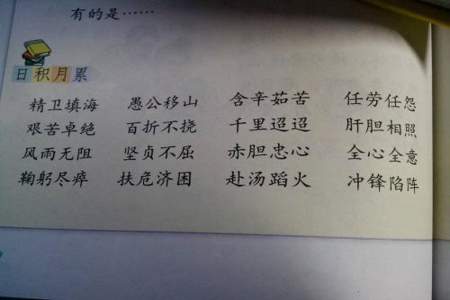 有的是……
日积月累
精卫填海 愚公移山 含辛茹苦 任劳任怨
艰苦卓绝 百折不挠 千里迢迢 肝胆相照
风雨无阻 坚贞不屈 赤胆忠心 全心全意
鞠躬尽瘁 扶危济困 赴汤蹈火 冲锋陷阵